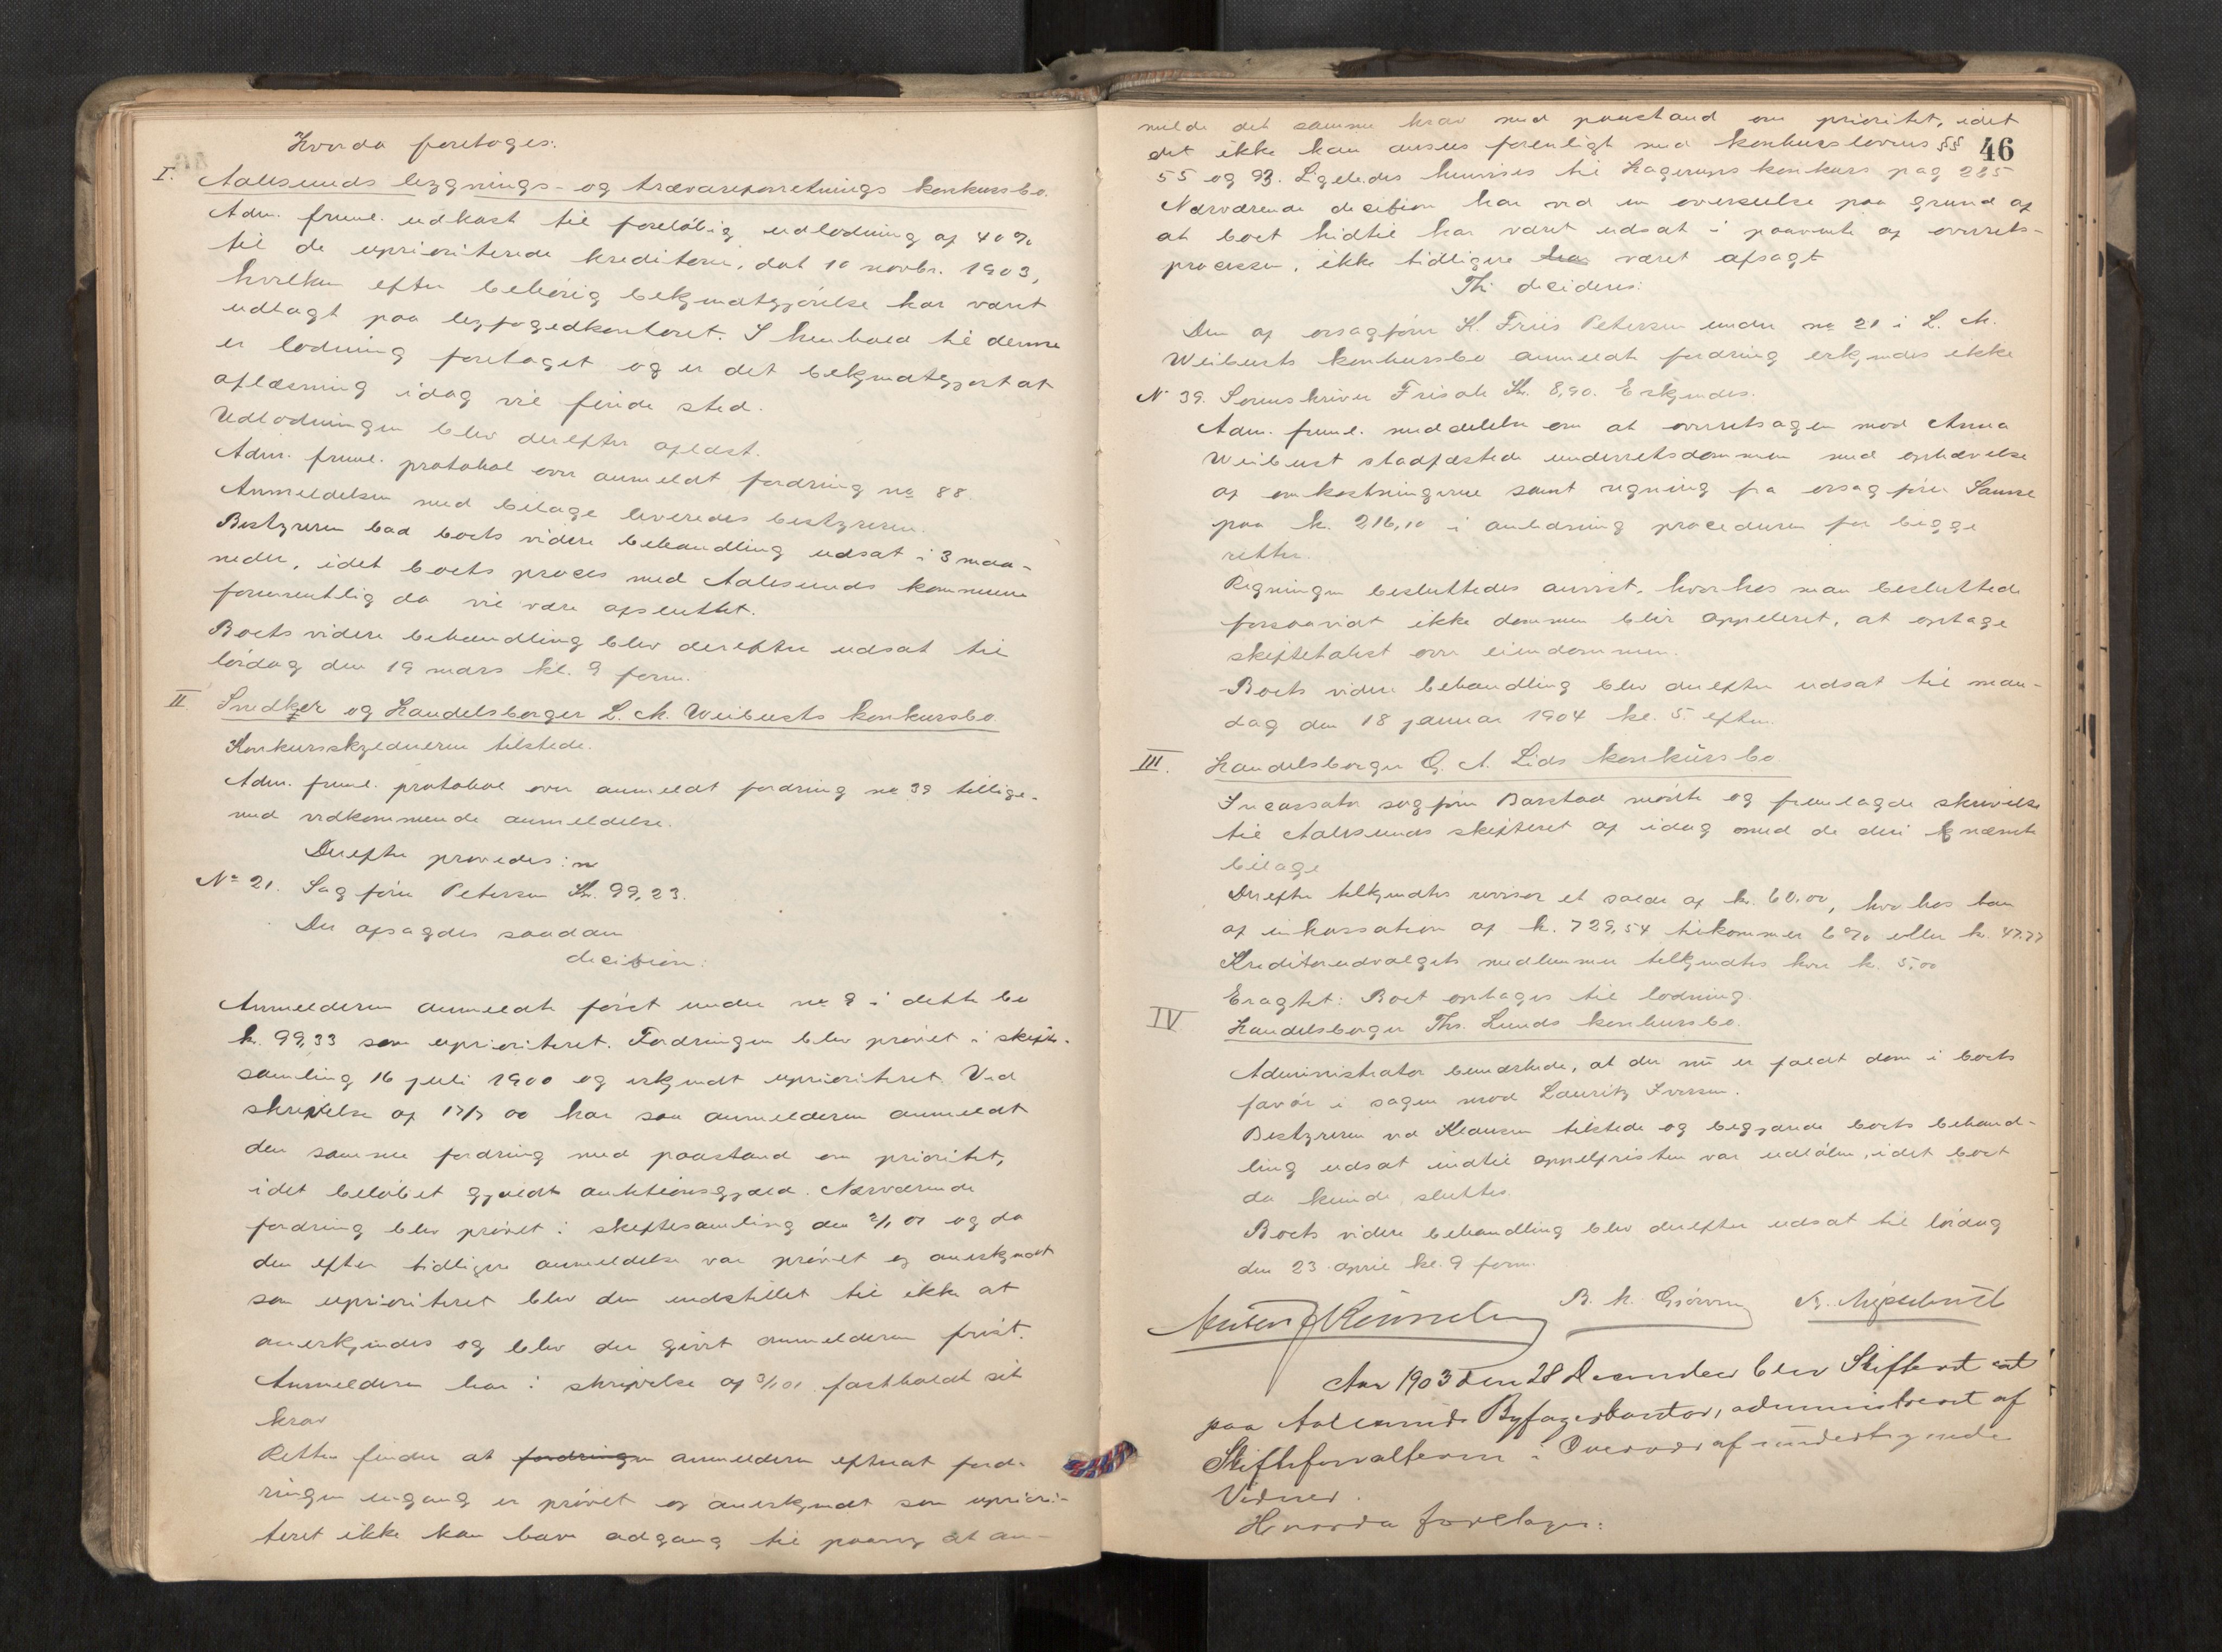 Hvorda foretoges:
I. Aalesunds bygnings- og trævareforretnings konkursbo.
Adm. freml. udkast til foreløbig udlodning af 40%
til de uprioriterede kreditorer, dat 10 novbr. 1903,
hvilken efter behørig bekjendtgjørelse har været
udlagt paa byfogedkontoret. I henhold til denne
er lodning foretaget og er det bekjendtgjort at
oplæsning idag vil finde sted.
Udlodningen blev derefter oplæst.
Adm. freml. protokol over anmeldt fordring no 88.
Anmeldelsen med bilage leveredes bestyreren.
Bestyreren bad boets videre behandling udsat i 3 maa-
neder, idet boets proces med Aalesunds kommune
formentlig da vil være afsluttet.
Boets videre behandling blev derefter udsat til
lørdag den 19 mars kl. 9 form.
II Snedker og Handelsborger L. M. Weibusts konkursbo
Konkursskyldneren tilstede.
Adm. freml. protokol over anmeldt fordring no 39 tillige-
med vedkommende anmeldelse.
Derefter prøvedes:
No 21. Sagfører Petersen Kr. 99,23.
Der afsagdes saadan
decision:
Anmelderen anmeldte først under no 9 i dette bo
kr. 99,33 som uprioriteret. Fordringen blev prøvet i skifte-
samling 16 juli 1900 og erkjendt uprioriteret. Ved
skrivelse af 17/7 00 har saa anmelderen anmeldt
den samme fordring med paastand om prioritet,
idet beløbet gjældt auktionsgjæld. Nærværende
fordring blev prøvet i skiftesamling den 2/1 01 og da
den efter tidligere anmeldelse var prøvet og anerkjendt
som uprioriteret blev den indstillet til ikke at
anerkjendes og blev der givet anmelderen frist.
Anmelderen har i skrivelse af 3/1 01 fastholdt sit
krav
Retten finder at fordringen anmelderen efterat ford-
ringen engang er prøvet og anerkjendt som upriori-
teret ikke kan have adgang til paany at an-
46
melde det samme krav med paastand om prioritet, idet
det ikke kan ansees forenligt med konkurslovens §§
55 og 93. Ligeledes henvises til Hagerups konkurs pag 285
Nærværende decision har ved en overseelse paa grund af
at boet hidtil har været udsat i paavente af overrets-
processen, ikke tidligere har været afsagt
Thi decideres:
Den af ovsagfører K. Friis Petersen under no 21 i L. M.
Weibusts konkursbo anmeldte fordring erkjendes ikke
No 39. Sorenskriver Frisak Kr. 8,90. Erkjendes.
Adm. freml. meddelelse om at overretsagen mod Anna
Weibust stadfæstede underretsdommen med ophævelse
af omkostningerne samt regning fra ovsagfører Sanne
paa kr. 216,10 i anledning proceduren for begge
retter.
Regningen besluttedes anvist, hvorhos man besluttede
forsaavidt ikke dommen blir appelleret, at optage
skiftetakst over eiendommen.
Boets videre behandling blev derefter udsat til man-
dag den 18 januar 1904 kl. 5 eftm.
III. Handelsborger G. A. Lids konkursbo
Incassator sagfører Barstad mødte og fremlagde skrivelse
til Aalesunds skifteret af idag med de deri nævnte
bilage
Derefter tilkjendtes revisor et salær af kr. 60,00, hvorhos han
af inkassation af kr. 729,54 tilkommer 6% eller kr. 47.77
Kreditorudvalgets medlemmer tilkjendtes hver kr. 5,00
Eragtet: Boet optages til lodning.
IV Handelsborger Ths. Lunds konkursbo.
Administrator bemærkede, at der nu er faldt dom i boets
favør i sagen mod Lauritz Iversen.
Bestyreren ved Klausen tilstede og begjærede boets behand-
ling udsat indtil appelfristen var udløben, idet boet
da kunde sluttes
Boets videre behandling blev derefter udsat til lørdag
den 23 april kl. 9 form.
Aar 1903 den 28 December blev Skifteret sat
paa Aalesunds Byfogedkontor, administreret af
Skifteforvalteren i Overvær af undertegnede
Vidner.
Hvorda foretoges: